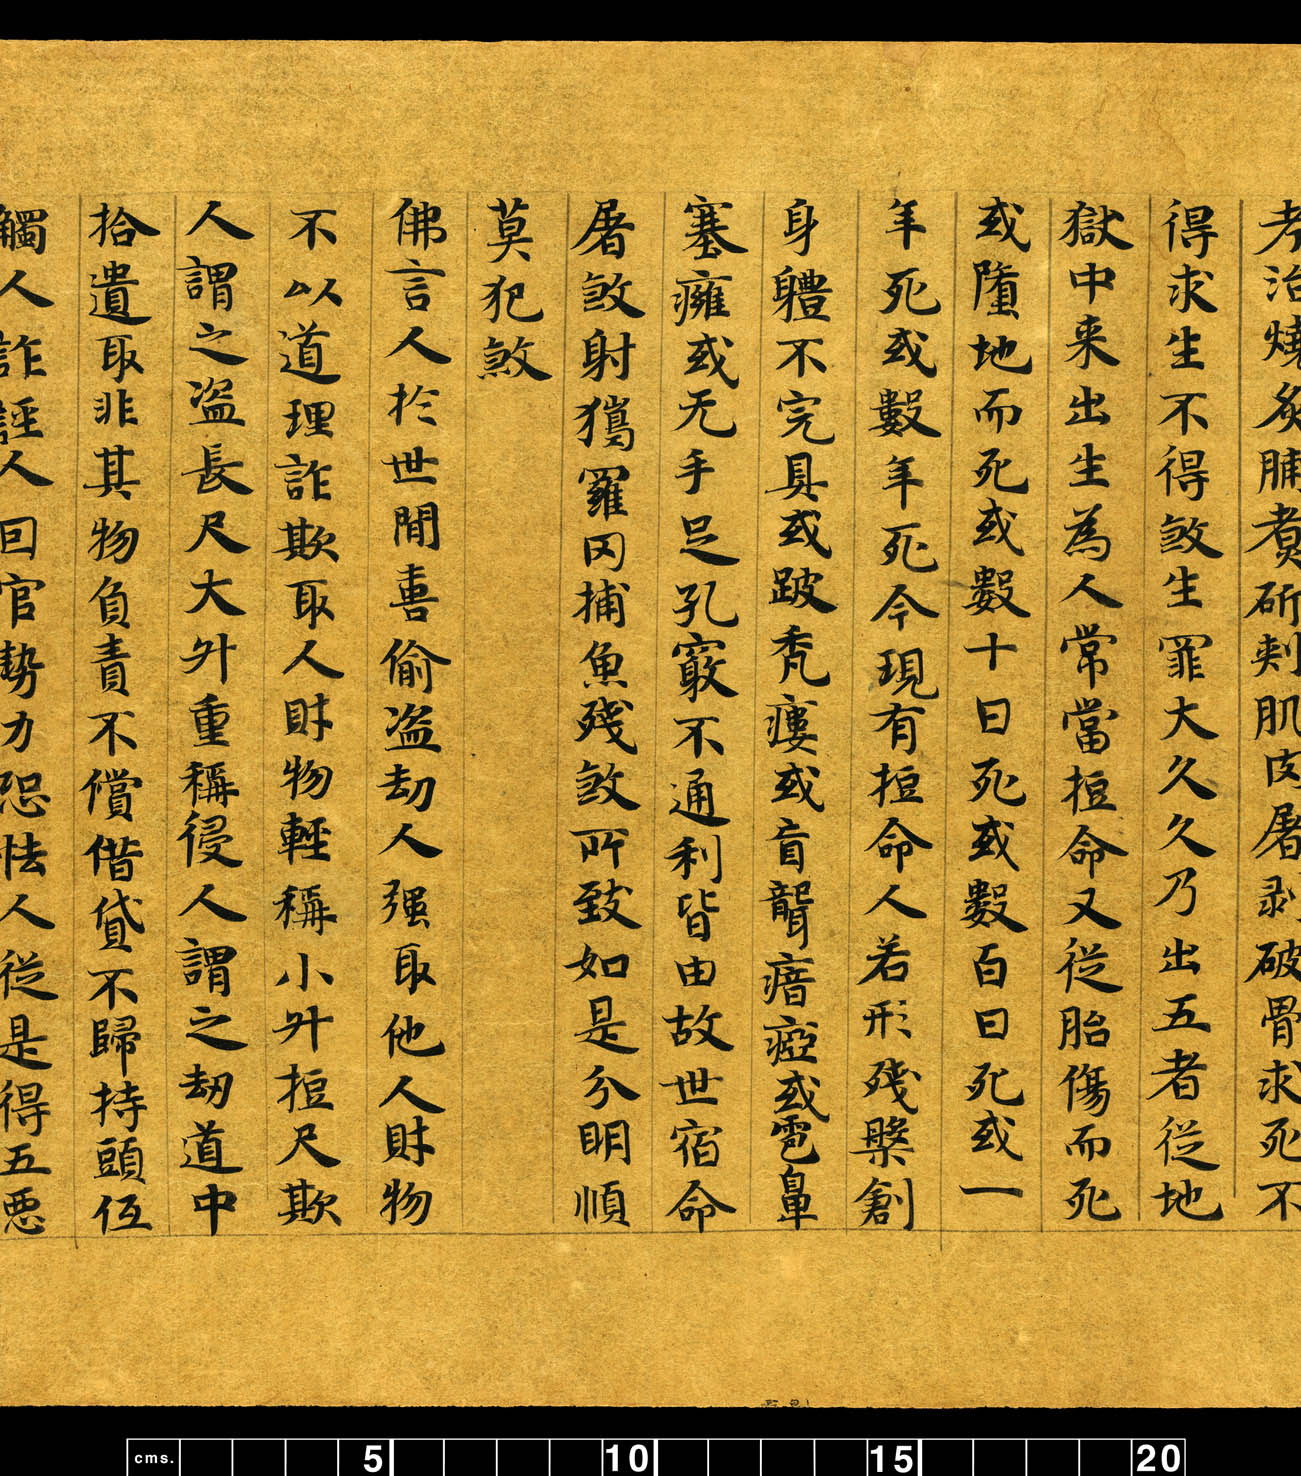 考治燒炙脯煮斫刾肌肉屠剥破骨求死不
得求生不得煞生罪大久久乃出五者従地
獄中来出生為人常當拒命又従胎傷而死
或墮地而死或數十日死或數百日死或一
年死或數年死今現有拒命人若形殘槃創
身軆不完具或跛秃瘻或盲聾瘖瘂或皰鼻
塞癕或无手足孔竅不通利皆由故世宿命
屠煞射獦羅罔捕魚殘煞所致如是分明慎
莫犯煞
佛言人於世間喜偷盗劫人强取他人財物
不以道理詐欺取人財物輕稱小升拒尺欺
人謂之盗長尺大升重稱侵人謂之劫道中
拾遺取非其物負責不償借貸不歸持頭伍
觸人詐誑人回官勢力恐怯人従是得五惡
cms. 5 10 15 20